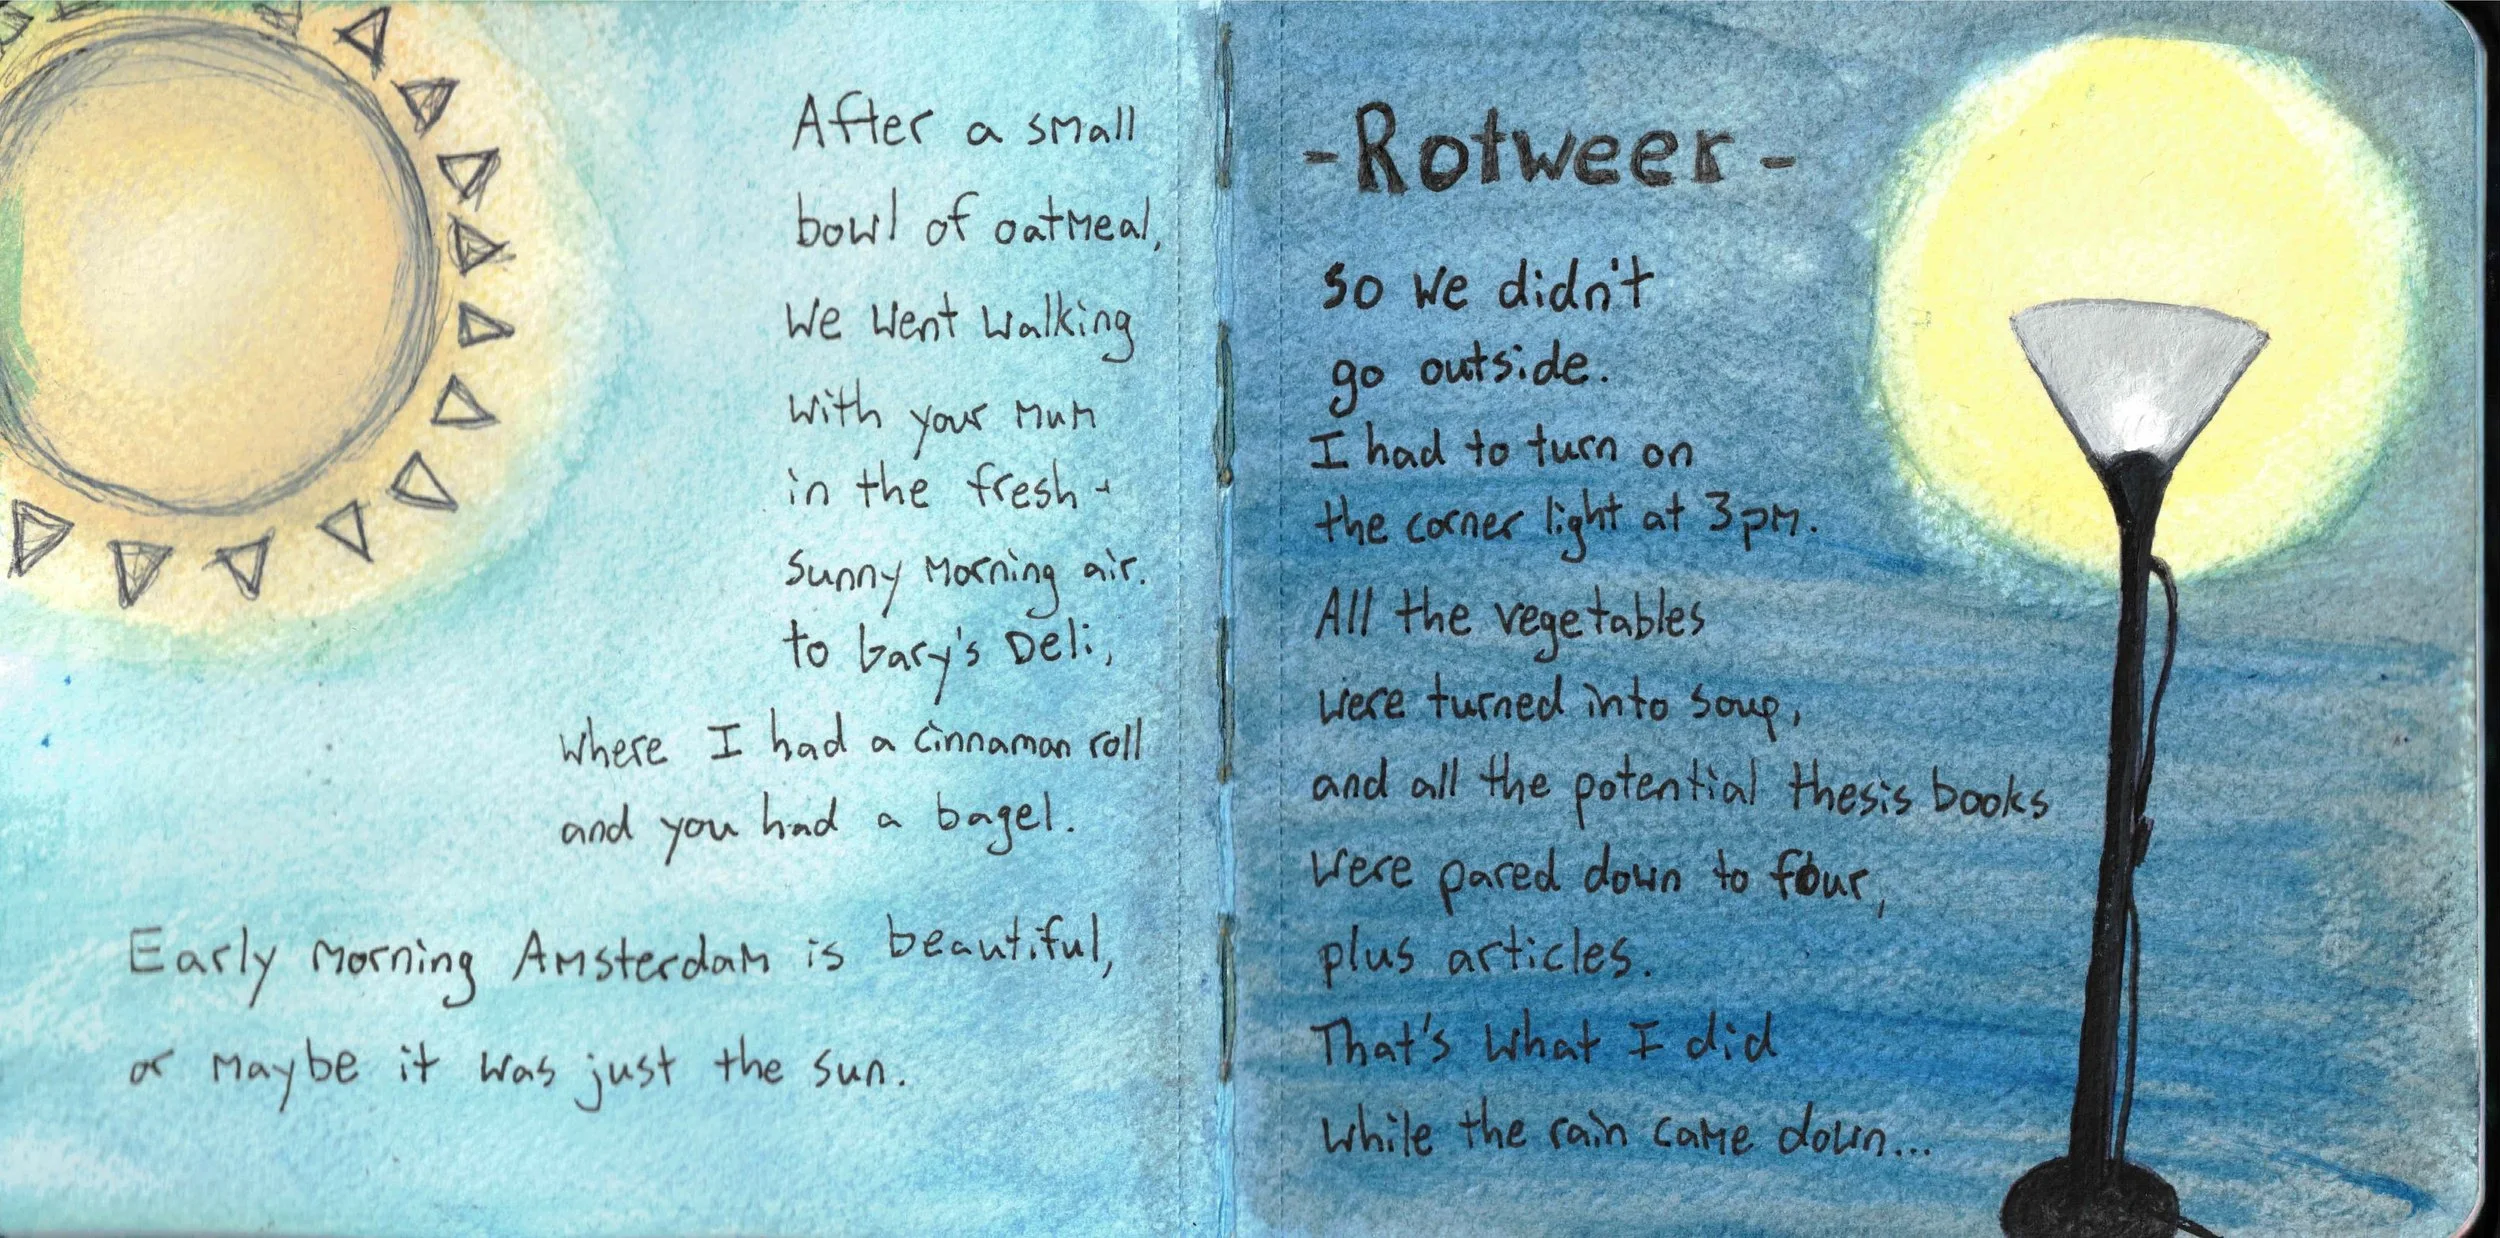 After a small
bowl of oatmeal,
we went walking
with your mum
in the fresh -
sunny morning air.
to Gary's Deli,
where I had a cinnaman roll
and you had a bagel.
Early morning Amsterdam is beautiful,
or maybe it was just the sun.
-Rotweer-
so we didn't
go outside.
I had to turn on
the corner light at 3pm.
All the vegetables
were turned into soup,
and all the potential thesis books
were pared down to four,
plus articles.
That's what I did
while the rain came down...